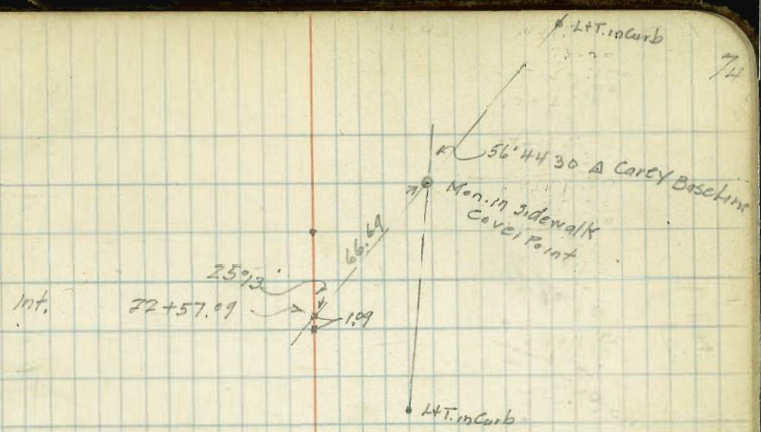 L+T. in Curb
74
56°44'30 △ Carey Baseline
Mon. in Sidewalk
Cover Point
66.69
25°13'
Int.
22+57.09
1.09
L+T. in Curb